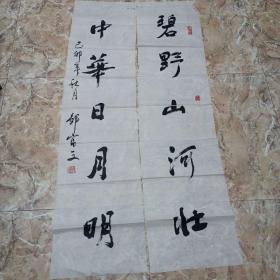 碧野山河壮
中華日月明
己卯年秋月